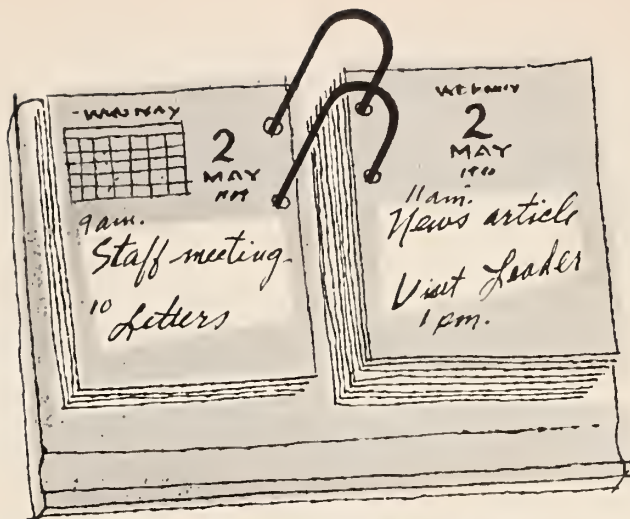 2
MAY
9 am.
Staff meeting
10
Letters
2
MAY
11 am.
News article
Visit Leader
1 pm.